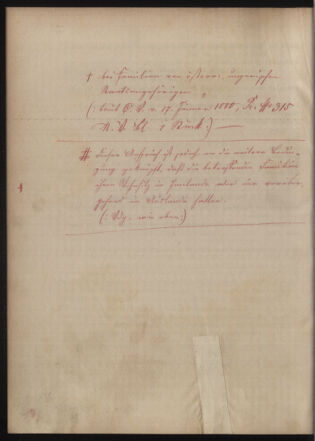 † bei Familien von österr. ungarischen
Staatsangehörigen
(: laut C. V. v. 17. Jänner 1880, Pr. № 315
N. V. Bl. 1 Stück:)
# dieser Anspruch ist jedoch an die weitere Bedin-
gung geknüpft, daß die betreffenden Familien
ihren Wohnsitz im Inlande oder nur vorüber-
gehend im Auslande haben.
(: Vdg. wie oben:)